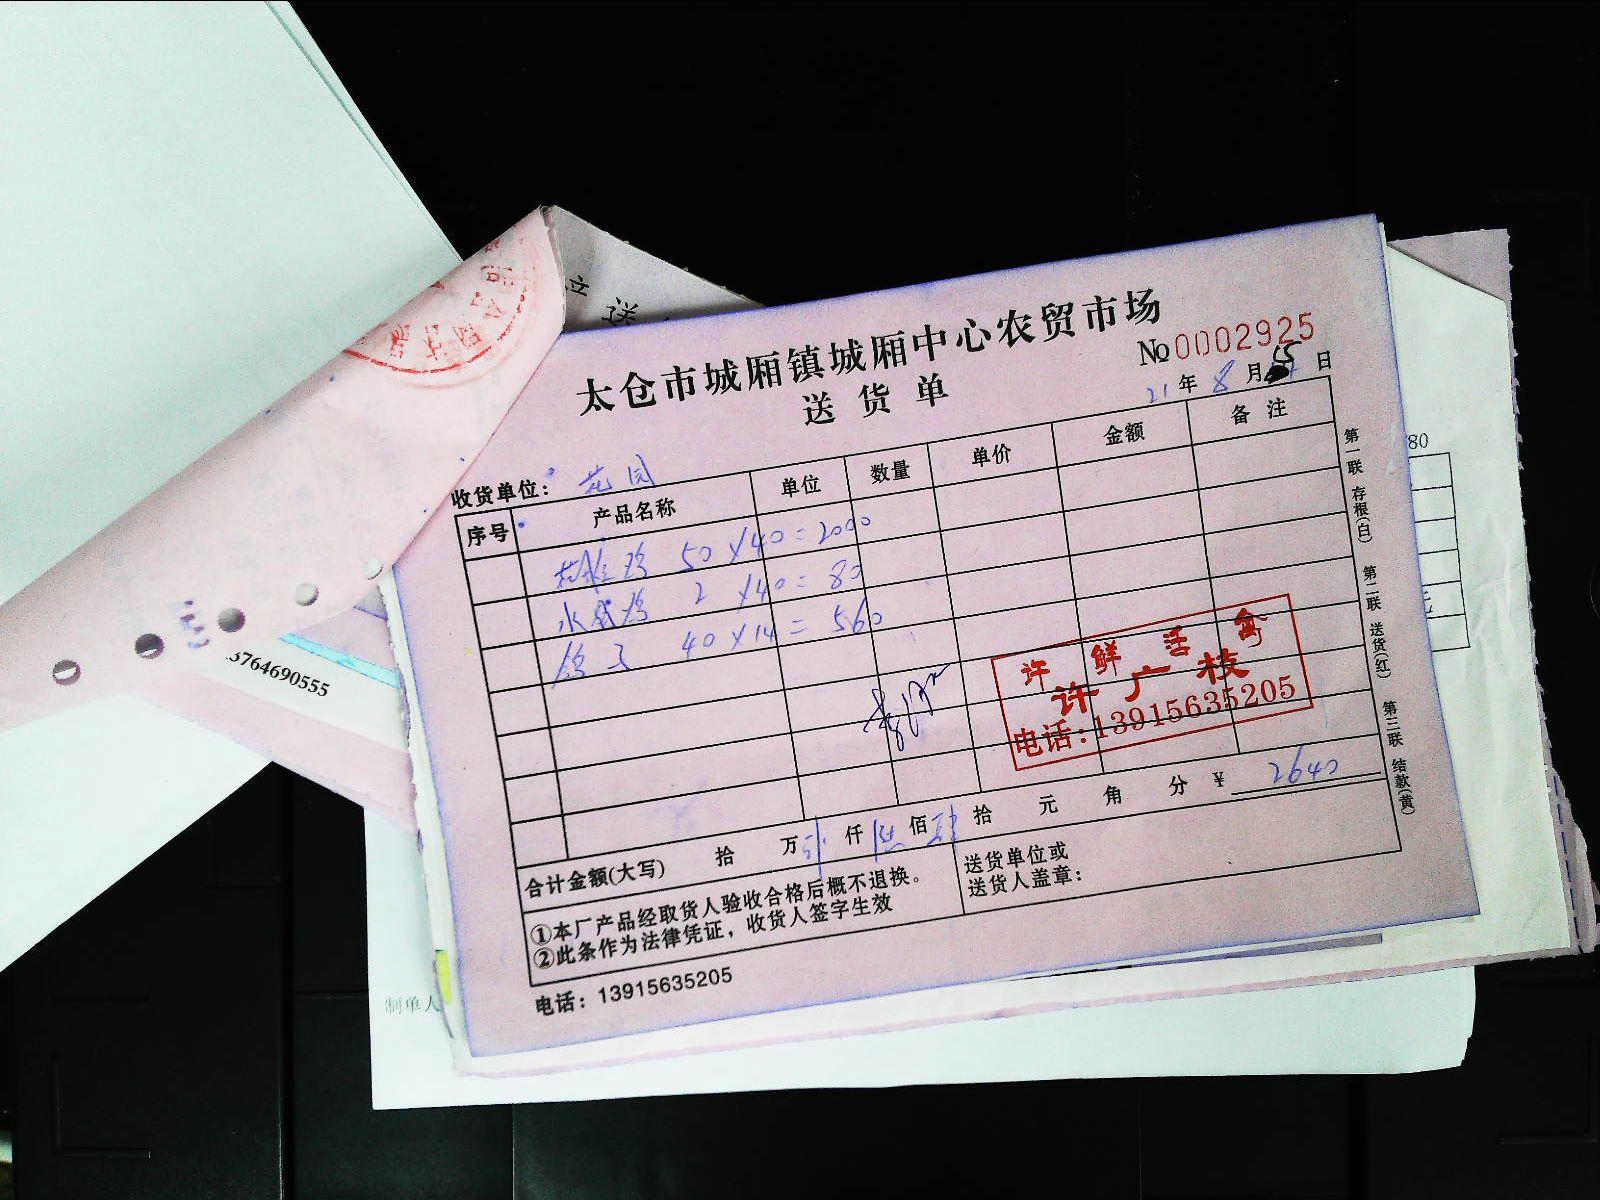 太仓市城厢镇城厢中心农贸市场
送货单
№0002925
21年8月15日
收货单位：花园
序号 产品名称 单位 数量 单价 金额 备注
鸡 50×40=2000
水 鸡 2×40=80
鸽子 40×14=560
许鲜活禽
许广枝
电话:13915635205
合计金额(大写) 拾 万 仟陆佰肆拾 元 角 分 ¥2640
①本厂产品经取货人验收合格后概不退换。
②此条作为法律凭证，收货人签字生效
送货单位或
送货人盖章：
电话：13915635205
第一联 存根(白) 第二联 送货(红) 第三联 结款(黄)
送
3764690555
制单人
80